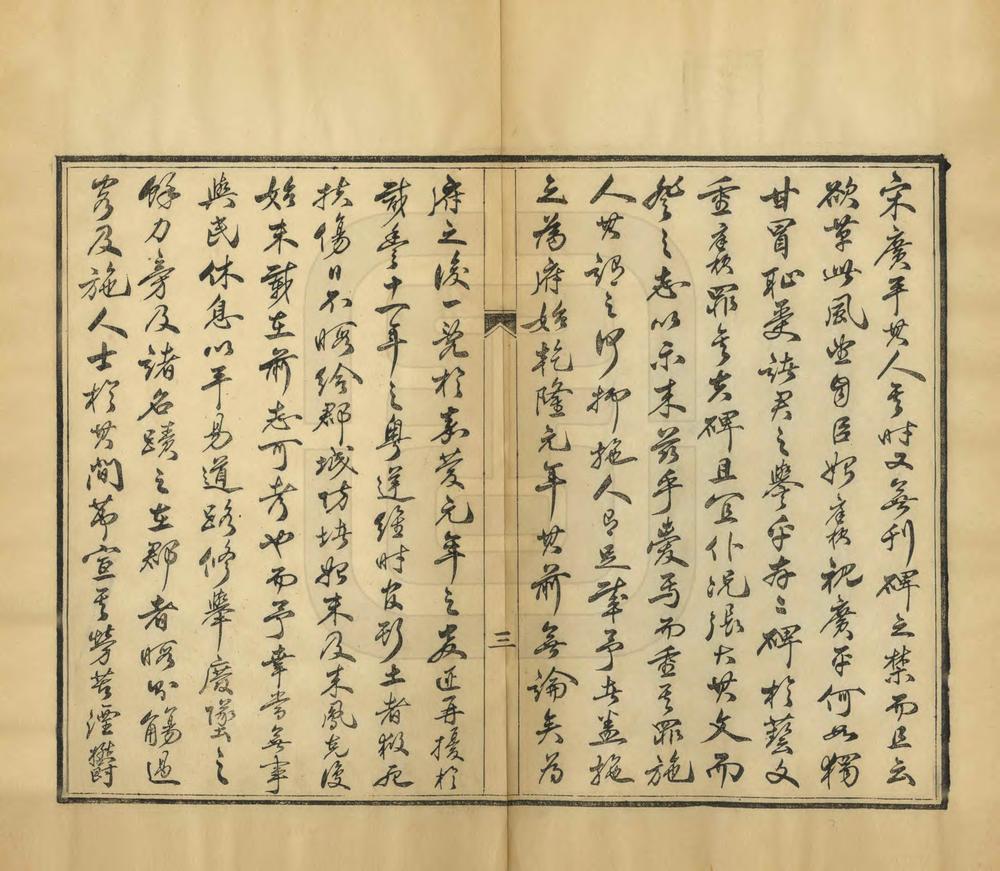 宋廣平其人其時又無刊碑之禁而且云
欲革此風望自臣始棟視廣平何如獨
甘冒恥受諸君之舉乎存之碑於藝文
重棟罪無其碑且宜仆況張大其文而
登之志以示來茲乎愛焉而重之罪施
人其謂之何抑施人已足輩予者蓋施
立為府始乾隆元年其前無論矣為
三
府之後一亮於嘉慶元年之教匪再擾於
咸豐十一年之粵逆維時官斯土者救死
扶傷日不暇給郡城坊堵始末及來鳳克復
始末載在前志可考也而予幸當無事
與民休息以平易道路修舉廢墜之
餘力旁及諸名蹟之在郡者暇則觴過
客及施人士於其間茀宣其勞苦湮鬱